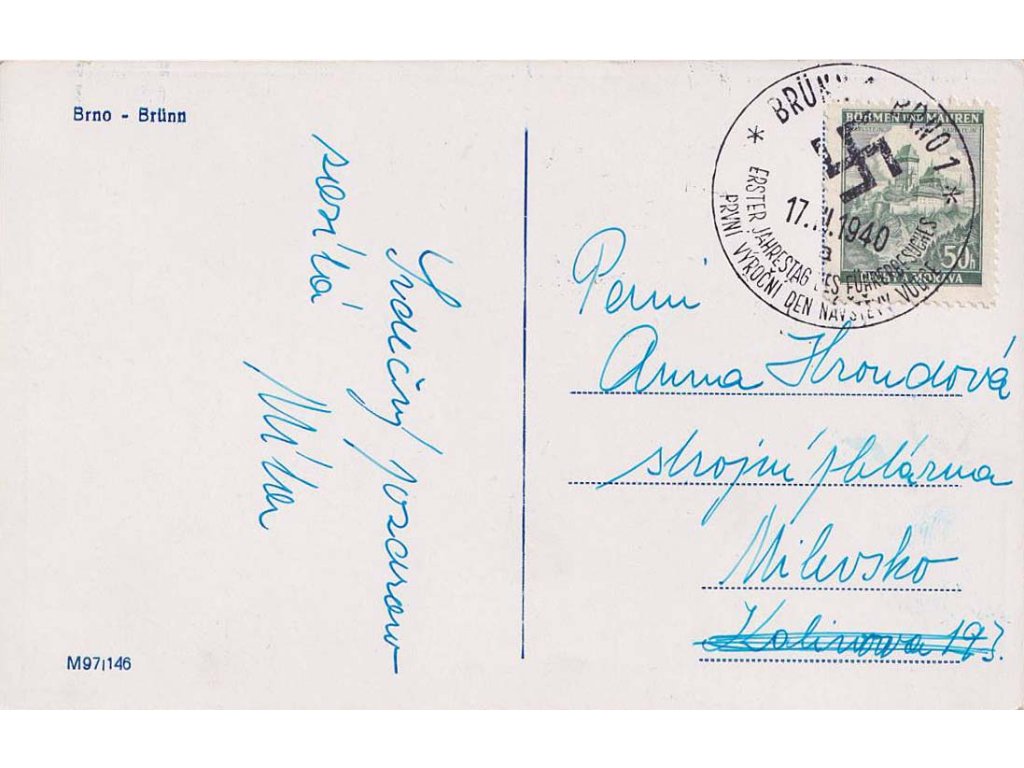 Brno - Brünn
Srdečný pozdrav
zasílá
Míla
M97/146
BRÜNN 1 BRNO 1
17. 1940
ERSTER JAHRESTAG DES FÜHRERBESUCHES
PRVNÍ VÝROČNÍ DEN NÁVŠTĚVY VŮDCE
BÖHMEN UND MÄHREN
50h
MORAVA
Paní
Anna Hroudová
strojní pletárna
Milevsko
Kalinova 193.